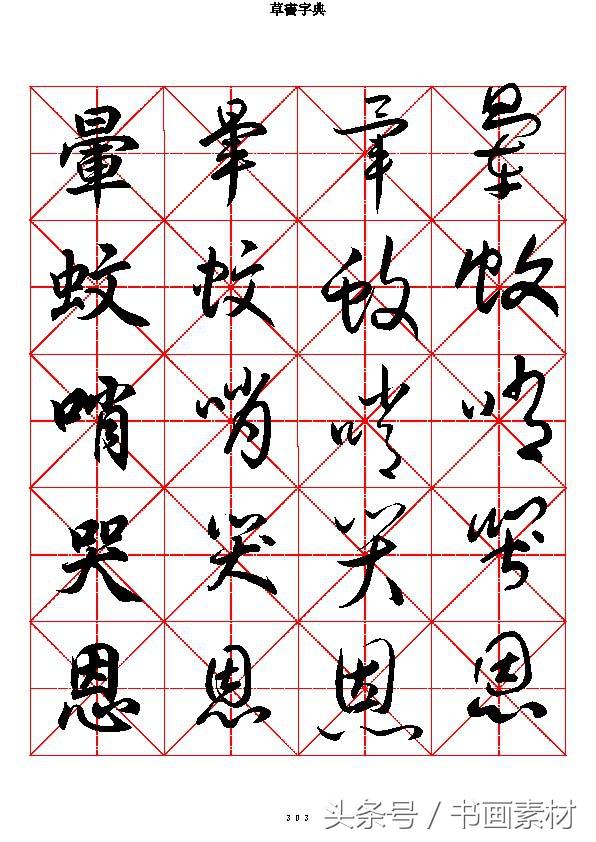 草書字典
暈 暈 暈 暈
蚊 蚊 蚊 蚊
哨 哨 哨 哨
哭 哭 哭 哭
恩 恩 恩 恩
303
头条号 / 书画素材